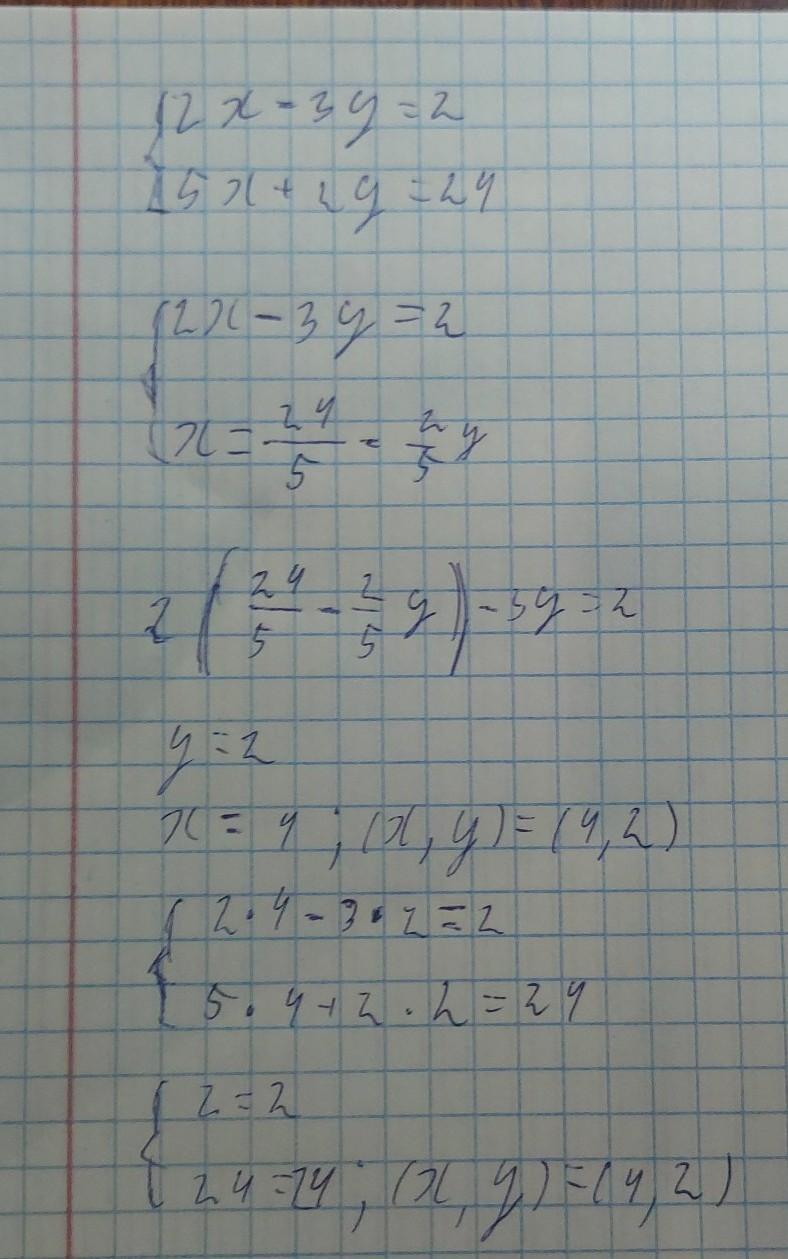 {2x - 3y = 2
{5x + 2y = 24
{2x - 3y = 2
{x = 24/5 - 2/5 y
2(24/5 - 2/5 y) - 3y = 2
y = 2
x = 4 ; (x, y) = (4, 2)
{2 · 4 - 3 · 2 = 2
{5 · 4 + 2 · 2 = 24
{2 = 2
{24 = 24 ; (x, y) = (4, 2)